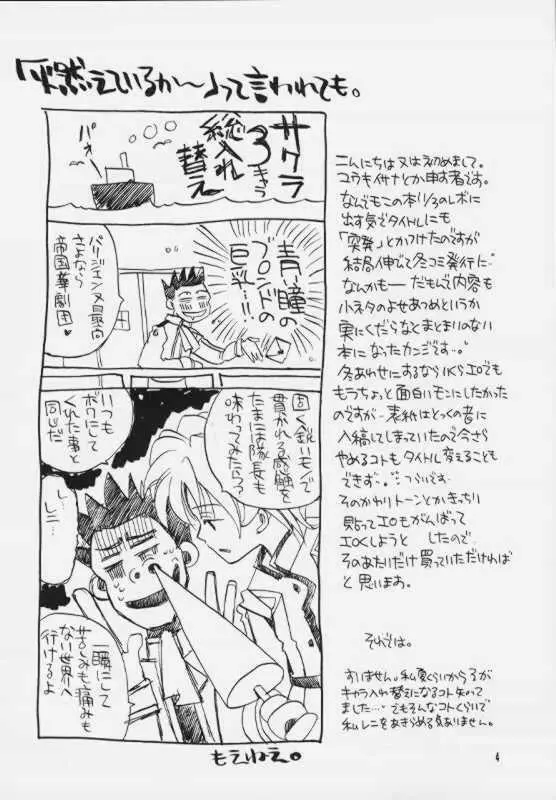 「燃えているか〜」って言われても。
サクラ
3キャラ
総入れ
替え
パォー
青い瞳の
ブロンドの
巨乳…!!
パリジェンヌ最高
さよなら
帝国華劇団
固く鋭いモンで
貫かれる感触を
たまには隊長も
味わってみたら?
いつも
ボクにして
くれた事と
同じだ
レ
レニ…
一瞬にして
苦しみも痛みも
ない世界へ
行けるよ
もえねえ。
こんにちは又は初めまして。
コウキイサナとか申す者です。
なんでもこの本11/3のレボに
出す気でタイトルにも
「突発」とかつけたのですが
結局伸びて冬コミ発行に
なんかもーだもんで内容も
小ネタのよせあつめというか
実にくだらなとまとまりのない
本になったカンジです…。
冬あわせにするならIKらエロでも
もうちょっと面白いモンにしたかった
のですが表紙はとっくの昔に
入稿してしまっていたので今さら
やめるコトもタイトル変えることも
できず…つらいです
そのかわりトーンとかきっちり
貼ってエロもがんばって
エロくしようと したので
そのあたいだけ買っていただければ
と思います。
それでは。
すいません。私夏くらいから3が
キャラ入れ替えになるコト知って
ました…でもそんなコトくらいで
私レニをあきらめる気ありません。
4